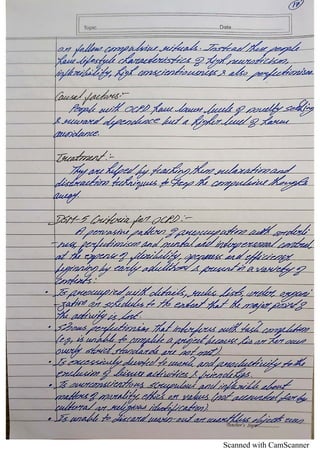 19
Topic
Date
an follow compulsive rituals. Instead these people
have lifestyle characteristics of high neuroticism,
inflexibility, high conscientiousness & also perfectionism.
Causal factors:-
People with OCPD have lower levels of novelty seeking
& reward dependence but a higher level of harm
avoidance.
Treatment :-
They are helped by teaching them relaxation and
distraction techniques to keep the compulsive thoughts
away.
DSM-5 Criteria for OCPD :-
A pervasive pattern of preoccupation with orderli
-ness, perfectionism and mental and interpersonal control,
at the expense of flexibility, openness and efficiency
beginning by early adulthood & present in a variety of
contexts:
• Is preoccupied with details, rules, lists, order, organi
-zation or schedules to the extent that the major point of
the activity is lost.
• Shows perfectionism that interferes with task completion
(e.g., is unable to complete a project because his or her own
overly strict standards are not met).
• Is excessively devoted to work and productivity to the
exclusion of leisure activities & friendships.
• Is overconscientious, scrupulous and inflexible about
matters of morality, ethics or values (not accounted for by
cultural or religious identification)
• Is unable to discard worn-out or worthless objects even
Teacher's Sign
Scanned with CamScanner